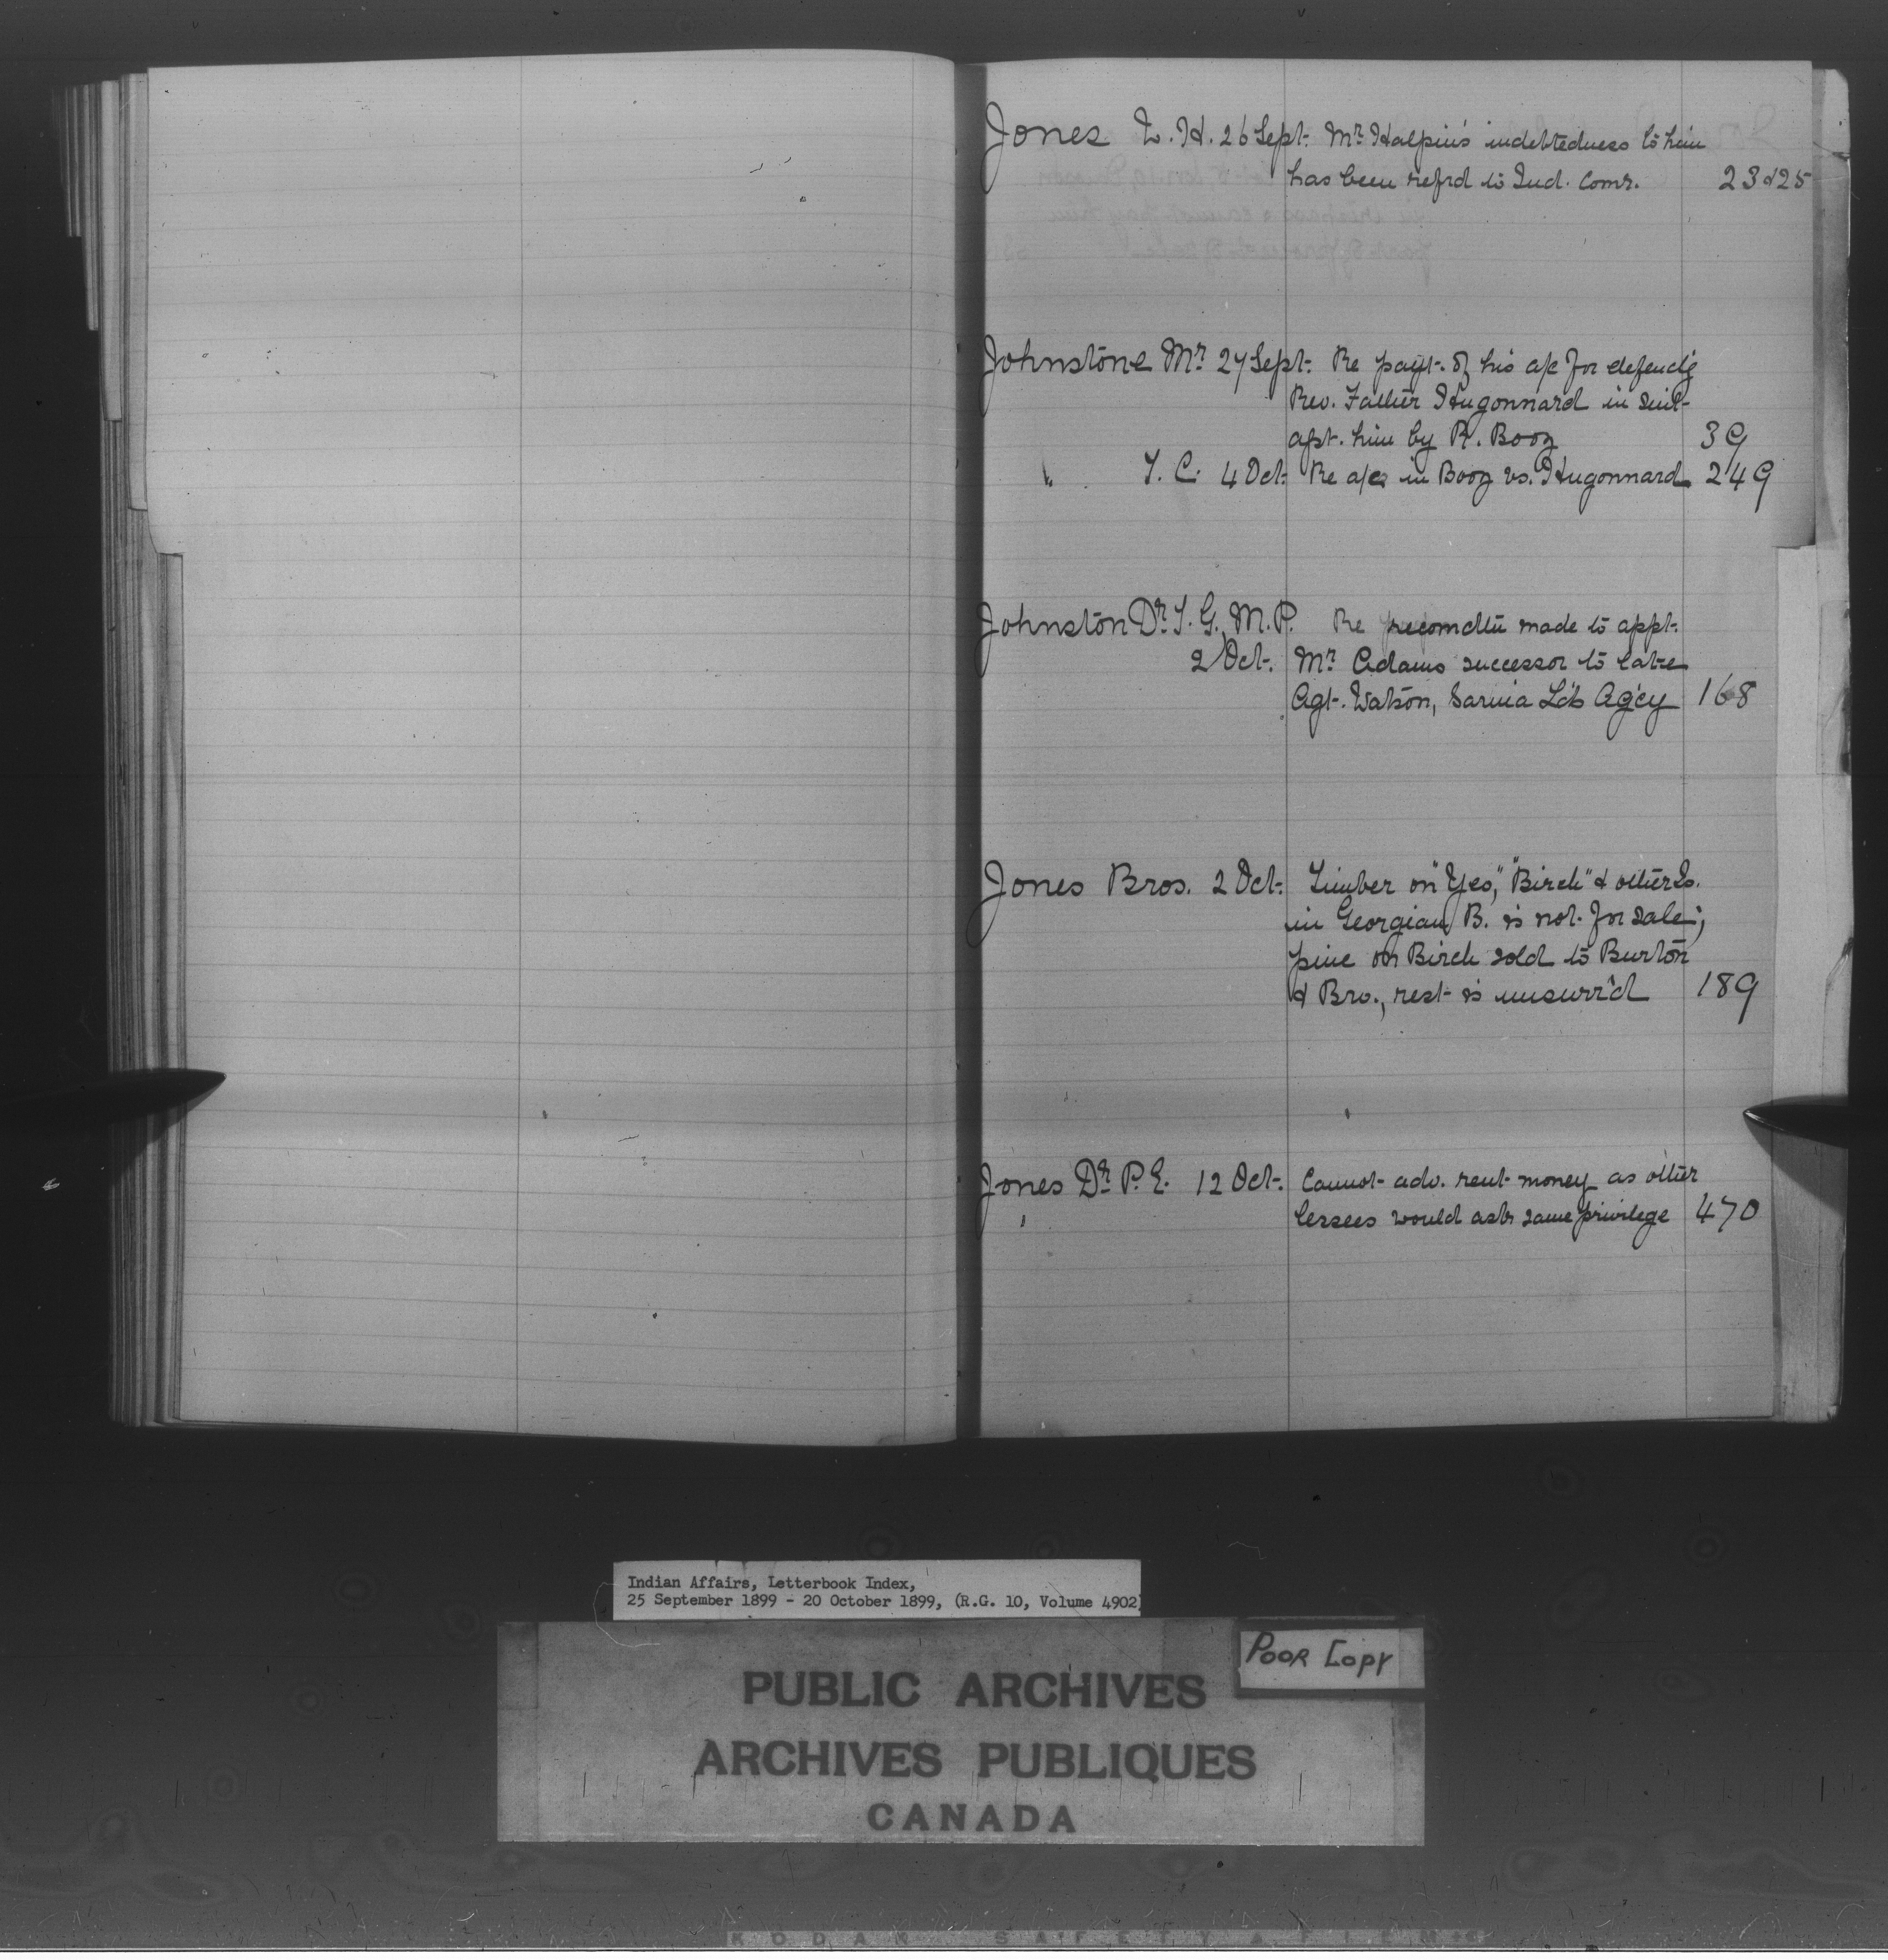 Jones L. H. 26 Sept. Mr. Halpin's indebtedness to him
has been refrd to Ind. Comr. 23&25
Johnstone Mr. 27 Sept. Re payt. of his a/c for defend'g
Rev. Father Hugonnard in suit
agst. him by R. Booz 39
" T. C. 4 Oct. Re a/cs in Booz vs. Hugonnard 249
Johnston Dr. T. G. M.P. Re recomdtn made to appt.
2 Oct. Mr. Adams successor to late
Agt. Watson, Sarnia Lds Ag'cy 168
Jones Bros. 2 Oct. Timber on "Yeo," "Birch" & other Is.
in Georgian B. is not for sale;
pine on Birch sold to Burton
& Bro., rest is unsurr'd 189
Jones Dr. P. E. 12 Oct. Cannot adv. rent money as other
lessees would ask same privilege 470
Indian Affairs, Letterbook Index,
25 September 1899 - 20 October 1899, (R.G. 10, Volume 4902)
POOR COPY
PUBLIC ARCHIVES
ARCHIVES PUBLIQUES
CANADA
KODAK SAFETY FILM